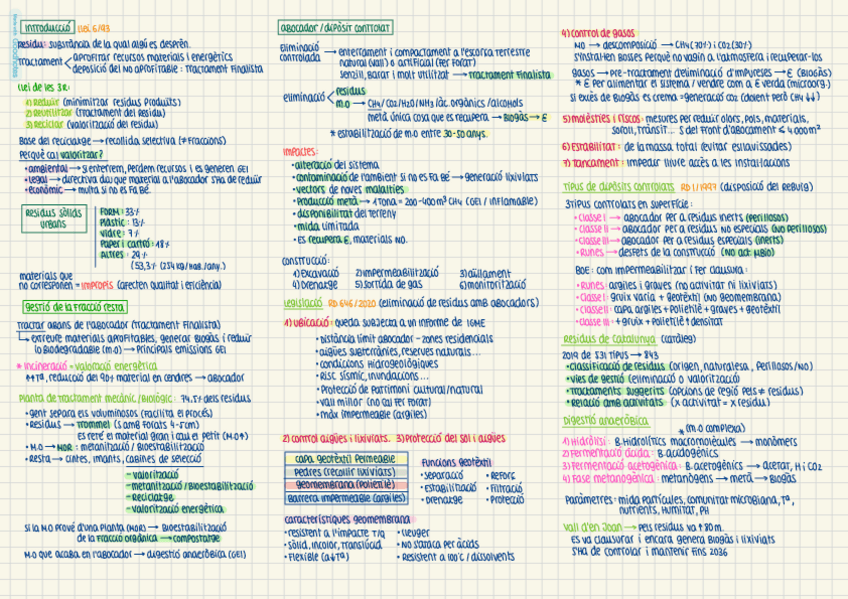 Introducció Llei 6/93
Residu: substància de la qual algú es desprèn.
Tractament
aprofitar recursos materials i energètics
deposició del no aprofitable: tractament finalista
Llei de les 3R:
1) Reduir (minimitzar residus produïts)
2) Reutilitzar (tractament del residu)
3) Reciclar (valorització del residu)
Base del reciclatge → recollida selectiva (≠ fraccions)
Perquè cal valoritzar?
• ambiental → si enterrem, perdem recursos i es generen GEI
• legal → directiva diu que material a l'abocador s'ha de reduir
• econòmic → multa si no es fa bé.
Residus sòlids urbans
FORM: 33%
Plàstic: 13%
Vidre: 7%
Paper i cartró: 18%
Altres: 29%
(53,3% (234 kg/hab./any.)
materials que
no corresponen = impropis (afecten qualitat i eficiència)
gestió de la fracció resta
Tractar abans de l'abocador (tractament finalista)
↳ extreure materials aprofitables, generar biogàs i reduir
lo biodegradable (m.o) → principals emissions GEI
* Incineració = valoració energètica
↑↑Tª, reducció del 90% material en cendres → abocador
Planta de tractament mecànic/biològic: 74.5% dels residus
• gent separa els voluminosos (facilita el procés)
• Residus → trommel (s amb forats 4-5 cm)
Es reté el material gran i cau el petit (M.O↑)
• M.O → MOR: metanització / bioestabilització
• Resta → cintes, imants, cabines de selecció
- valorització
- metanització/bioestabilització
- Reciclatge
- valorització energètica
Si la MO prové d'una planta (MOR) → Bioestabilització
de la fracció orgànica → compostatge
M.O que acaba en l'abocador → digestió anaeròbica (GEI)
abocador / dipòsit controlat
Eliminació controlada → enterrament i compactament a l'escorça terrestre
natural (vall) o artificial (fer forat)
senzill, barat i molt utilitzat → tractament finalista
eliminació
residus
m.o → CH4/CO2/H2O/NH3/àc. orgànics/alcohols
metà única cosa que es recupera → biogàs → E
* estabilització de m.o entre 30-50 anys.
Impactes:
• alteració del sistema
• contaminació de l'ambient si no es fa bé → generació lixiviats
• vectors de noves malalties
• producció metà → 1 tona = 200-400 m³ CH4 (GEI / inflamable)
• disponibilitat del terreny
• mida limitada
• Es recupera E, materials NO.
Construcció:
1) Excavació 2) Impermeabilització 3) Aïllament
4) Drenatge 5) Sortida de gas 6) monitorització
Legislació RD 646/2020 (eliminació de residus amb abocadors)
1) ubicació: queda subjecta a un informe de IGME
• Distància límit abocador - zones residencials
• aigües subterrànies, reserves naturals...
• condicions hidrogeològiques
• Risc sísmic, inundacions...
• Protecció de patrimoni cultural/natural
• Vall millor (no cal fer forat)
• màx impermeable (argiles)
2) control aigües i lixiviats. 3) Protecció del sòl i aigües
capa geotèxtil permeable
pedres (recollir lixiviats)
geomembrana (polietilè)
Barrera impermeable (argiles)
Funcions geotèxtil
• Separació • Reforç
• Estabilitació • Filtració
• Drenatge • Protecció
característiques geomembrana
• resistent a l'impacte T/Q • lleuger
• sòlid, incolor, translúcid • No s'ataca per àcids
• Flexible (a↓Tª) • Resistent a 100°C / dissolvents
4) control de gasos
MO → descomposició → CH4 (70%) i CO2 (30%)
S'instal·len bosses perquè no vagin a l'atmosfera i recuperar-los
gasos → pre-tractament d'eliminació d'impureses → E (biogàs)
* E per alimentar el sistema / vendre com a E verda (microorg.)
Si excés de biogàs es crema = generació CO2 (dolent però CH4 ↓↓)
5) molèsties i riscos: mesures per reduir olors, pols, materials,
soroll, trànsit... S del front d'abocament ≤ 4.000m²
6) Estabilitat: de la massa total (evitar esllavissades)
7) tancament: impedir lliure accés a les instal·lacions
Tipus de dipòsits controlats RD 1/1997 (disposició del rebuig)
3 tipus controlats en superfície:
• Classe I → abocador per a residus inerts (perillosos)
• Classe II → abocador per a residus no especials (no perillosos)
• Classe III → abocador per a residus especials (inerts)
• Runes → desfets de la construcció (No act. μBio)
BOE: com impermeabilitzar i fer clausura:
• Runes: argiles i graves (no activitat ni lixiviats)
• Classe I: gruix varia + geotèxtil (No geomembrana)
• Classe II: capa argiles + polietilè + graves + geotèxtil
• Classe III: + gruix + polietilè ↑ densitat
Residus de Catalunya (catàleg)
2019 de 531 tipus → 843
• Classificació de residus (origen, naturalesa, perillosos/NO)
• vies de gestió (eliminació o valorització)
• tractaments suggerits (opcions de regió pels ≠ residus)
• Relació amb activitats (x activitat = x residu)
Digestió anaeròbica
* (m.o complexa)
1) Hidròlisi: B. hidrolítics macromolècules → monòmers
2) Fermentació àcida: B. acidogènics
3) Fermentació acetogènica: B. acetogènics → acetat, H i CO2
4) Fase metanogènica: metanògens → metà → Biogàs
Paràmetres: mida partícules, comunitat microbiana, Tª,
nutrients, humitat, pH
Vall d'en Joan → pels residus va ↑ 80 m.
Es va clausurar i encara genera biogàs i lixiviats
S'ha de controlar i mantenir fins 2036